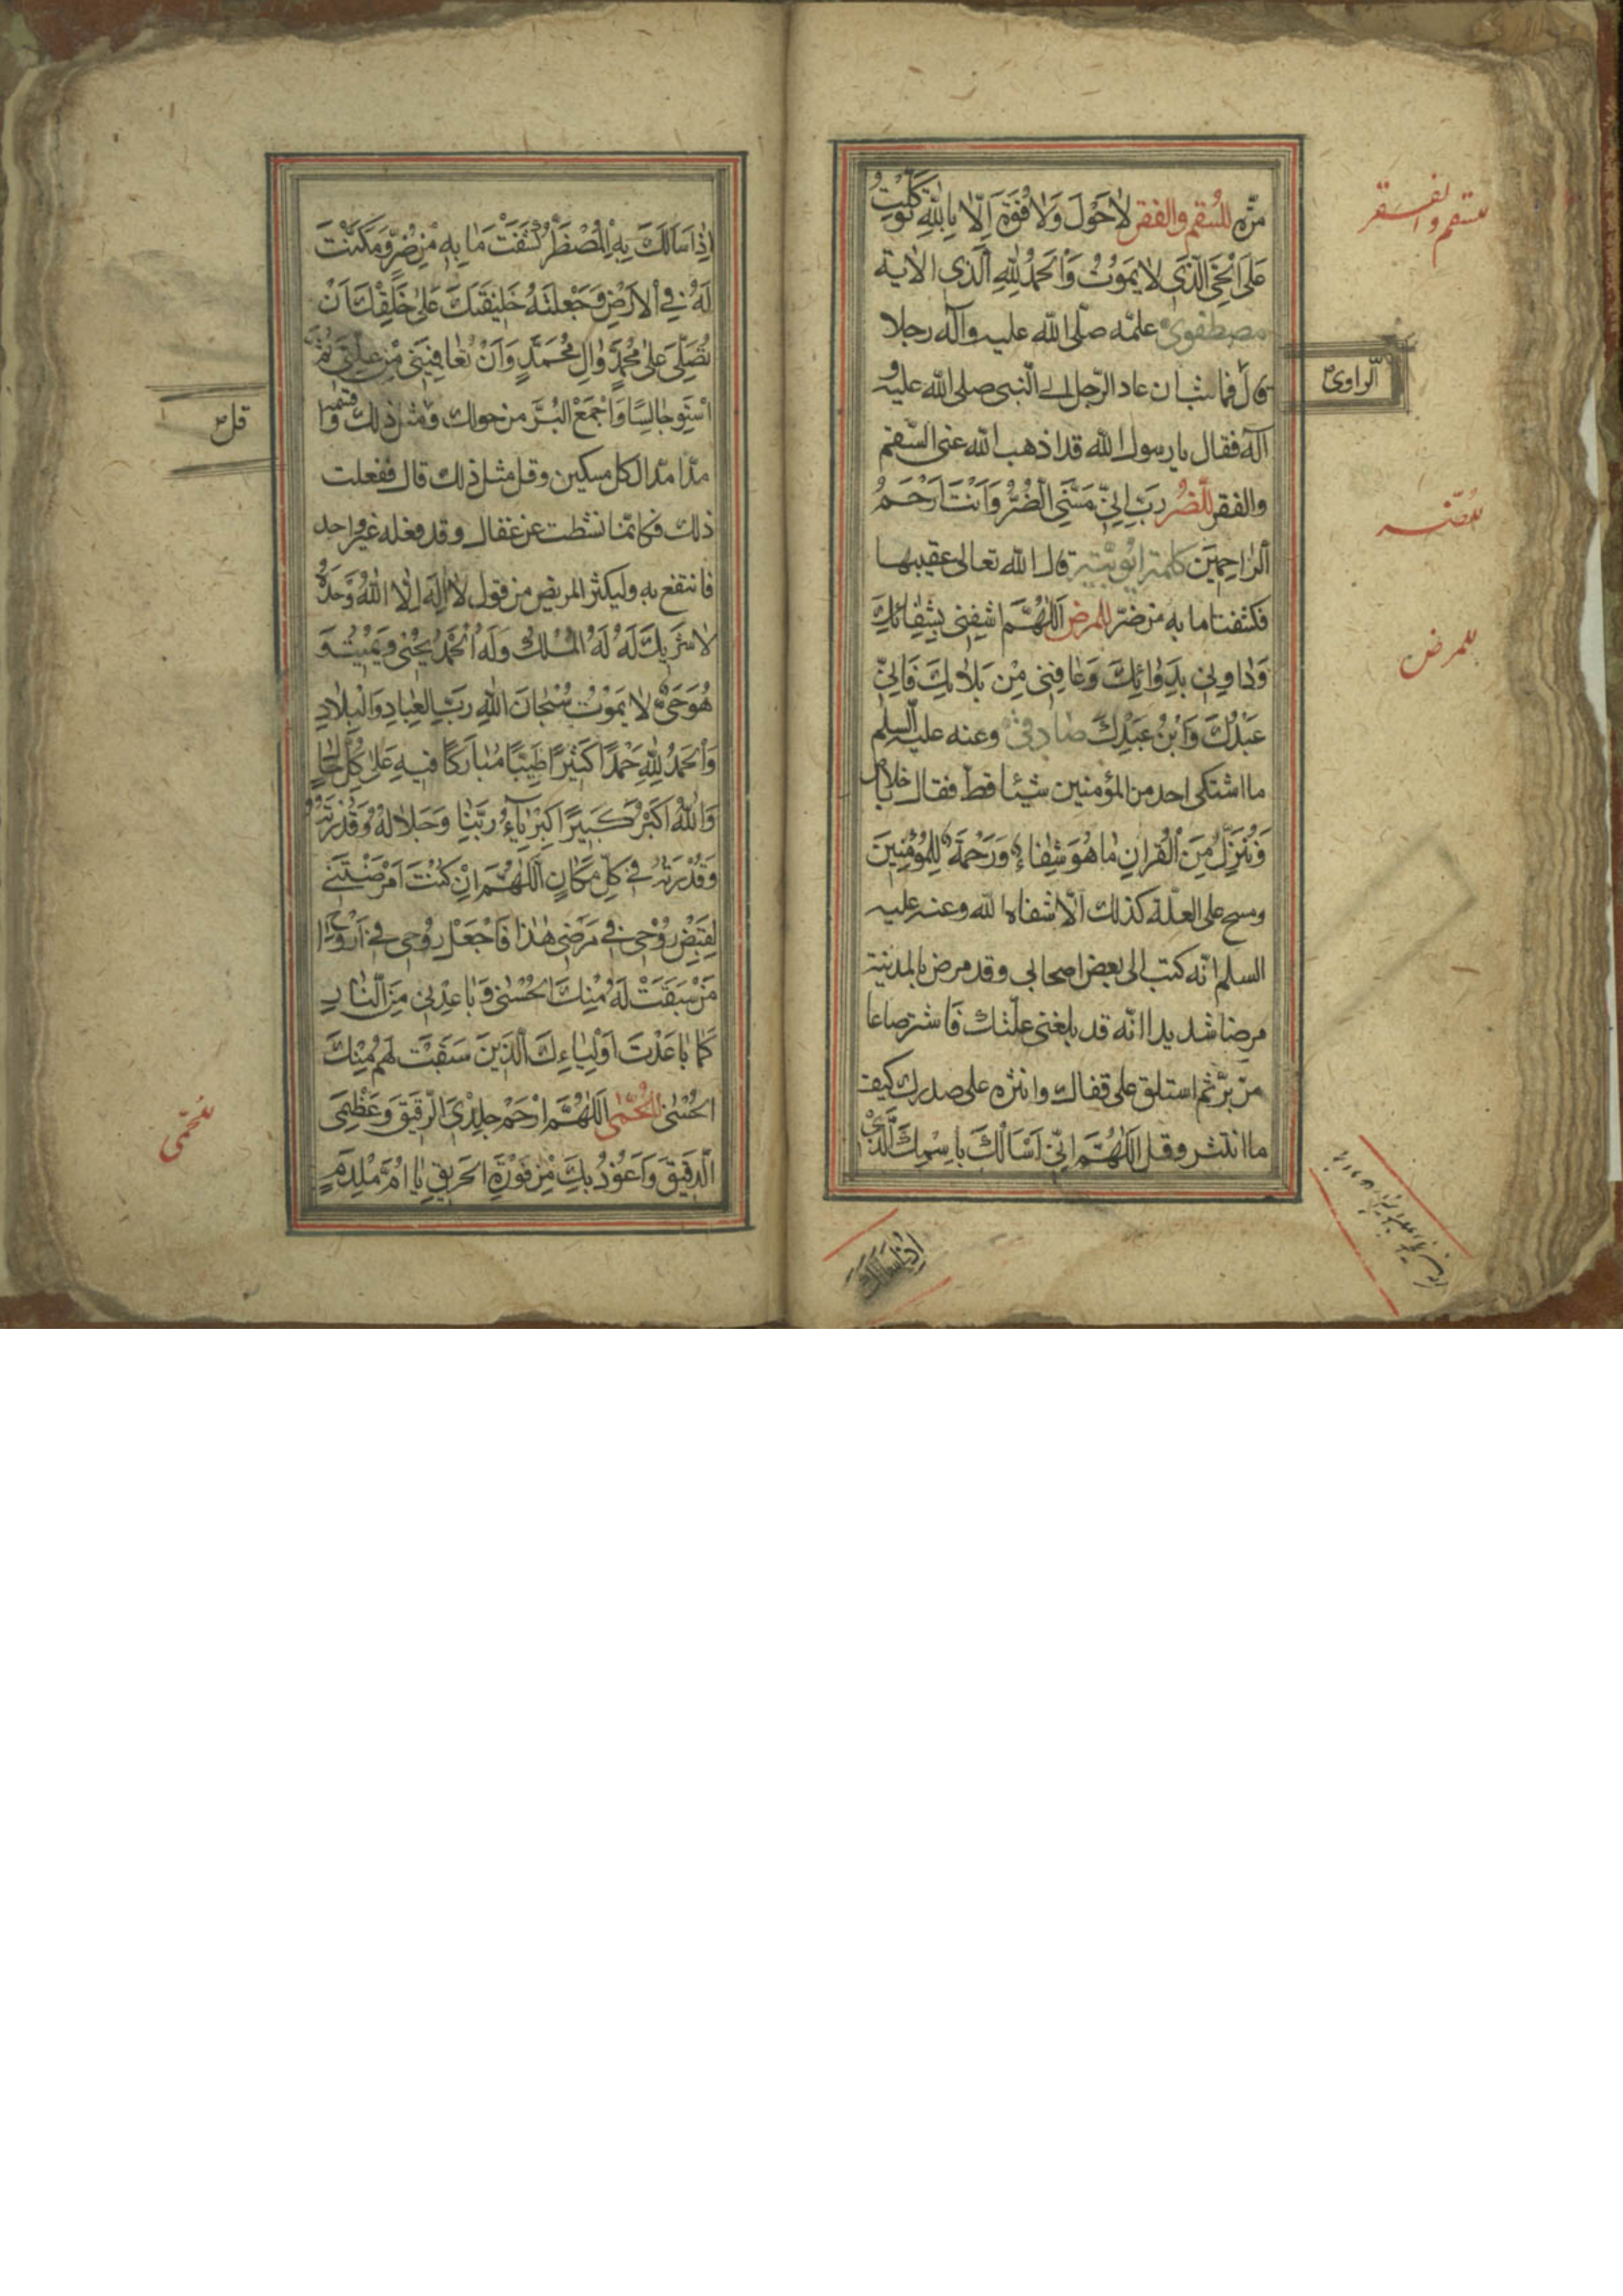 مرّه للسقم والفقر لاٰ حَوْلَ وَلاٰ قُوَّةَ اِلّاٰ بِاللّٰهِ تَوَكَّلْتُ
عَلَى الْحَيِّ الَّذي لاٰ يَمُوتُ وَالْحَمْدُ لِلّٰهِ الَّذي الاية
مصطفوى علمه صلى الله عليه وآله رجلا
قال فما شب ان عاد الرجل الى النبى صلى الله عليه و
آله فقال يا رسول الله قد اذهب الله عنى السقم
والفقر للضر رَبِّ اِنّي مَسَّنِيَ الضُّرُّ وَاَنْتَ اَرْحَمُ
الرّاٰحِمينَ كلمة ايوبية قال الله تعالى عقيبها
فكشفنا ما به من ضر للمرض اَللّٰهُمَّ اشْفِني بِشِفٰائِكَ
وَدٰاوِني بِدَوٰائِكَ وَعٰافِني مِنْ بَلاٰئِكَ فَاِنّي
عَبْدُكَ وَابْنُ عَبْدِكَ صادقى وعنه عليه السلم
ما اشتكى احد من المؤمنين شيئا قط فقال باخلاص
وَنُنَزِّلُ مِنَ الْقُرْاٰنِ مٰا هُوَ شِفٰاءٌ وَرَحْمَةٌ لِلْمُؤْمِنينَ
ومسح على العلة كذلك الّا شفاه الله وعنه عليه
السلم انّه كتب الى بعض اصحابى وقد مرض بالمدينة
مرضا شديدا انّه قد بلغنى علّتك فاشتر صاعا
من برّ ثم استلق على قفاك وانثره على صدرك كيف
ما انتثر وقل اَللّٰهُمَّ اِنّي اَسْاَلُكَ بِاسْمِكَ الَّذي
للسقم والفقر
الراوى
للضر
للمرض
اذا سالك
اِذٰا سَاَلَكَ بِهِ الْمُضْطَرُّ كَشَفْتَ مٰا بِهِ مِنْ ضُرٍّ وَمَكَّنْتَ
لَهُ فِي الْاَرْضِ وَجَعَلْتَهُ خَليفَتَكَ عَلىٰ خَلْقِكَ اَنْ
تُصَلِّيَ عَلىٰ مُحَمَّدٍ وَاٰلِ مُحَمَّدٍ وَاَنْ تُعٰافِيَني مِنْ عِلَّتي ثمّ
استو جالسا واجمع البرّ من حولك وقل مثل ذلك واقسمه
مدّا مدّا لكل مسكين وقل مثل ذلك قال ففعلت
ذلك فكانّما نشطت عن عقال وقد فعله غير واحد
فانتفع به وليكثر المريض من قول لاٰ اِلٰهَ اِلَّا اللّٰهُ وَحْدَهُ
لاٰ شَريكَ لَهُ لَهُ الْمُلْكُ وَلَهُ الْحَمْدُ يُحْيي وَيُميتُ وَ
هُوَ حَيٌّ لاٰ يَمُوتُ سُبْحٰانَ اللّٰهِ رَبِّ الْعِبٰادِ وَالْبِلاٰدِ
وَالْحَمْدُ لِلّٰهِ حَمْدًا كَثيرًا طَيِّبًا مُبٰارَكًا فيهِ عَلىٰ كُلِّ حٰالٍ
وَاللّٰهُ اَكْبَرُ كَبيرًا كِبْرِيٰاءُ رَبِّنٰا وَجَلاٰلُهُ وَقُدْرَتُهُ
وَقُدْرَتُهُ في كُلِّ مَكٰانٍ اَللّٰهُمَّ اِنْ كُنْتَ اَمْرَضْتَني
لِقَبْضِ رُوحي في مَرَضي هٰذٰا فَاجْعَلْ رُوحي في اَرْوٰاحِ
مَنْ سَبَقَتْ لَهُ مِنْكَ الْحُسْنىٰ وَبٰاعِدْني مِنَ النّٰارِ
كَمٰا بٰاعَدْتَ اَوْلِيٰاءَكَ الَّذينَ سَبَقَتْ لَهُمْ مِنْكَ
الْحُسْنىٰ للحمى اَللّٰهُمَّ ارْحَمْ جِلْدِيَ الرَّقيقَ وَعَظْمِيَ
الدَّقيقَ وَاَعُوذُ بِكَ مِنْ فَوْرَةِ الْحَريقِ يٰا اُمَّ مِلْدَمٍ
قل
للحمى